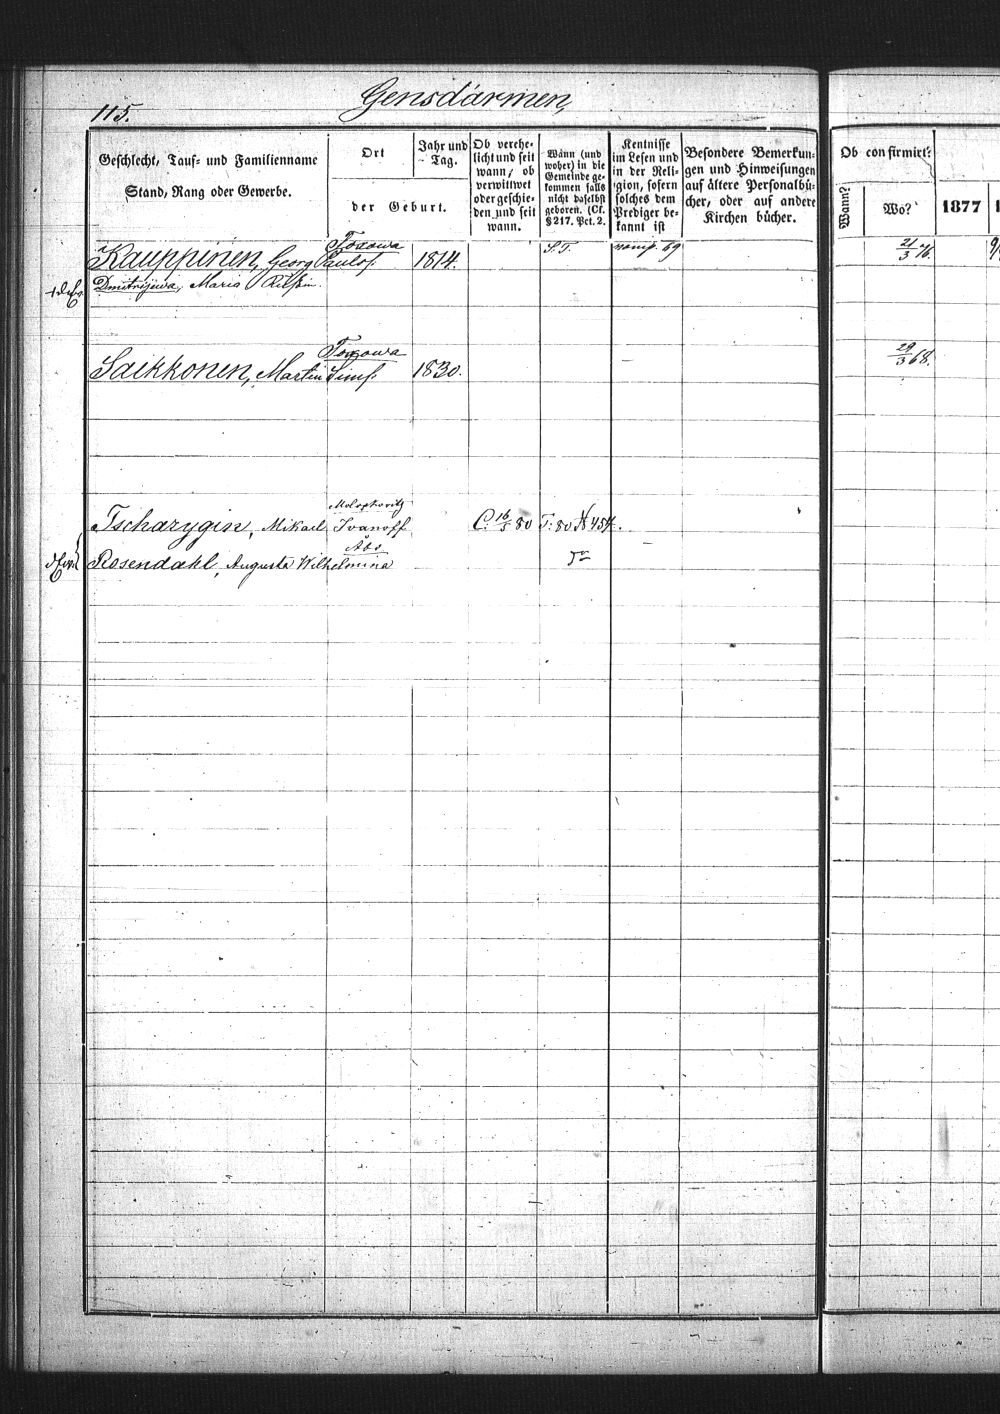 Gensdärmen,
115.
Geschlecht, Tauf- und Familienname
Stand, Rang oder Gewerbe.
Ort
der Geburt.
Jahr und
Tag.
Ob verehe-
licht und seit
wann, ob
verwittwet
oder geschie-
den und seit
wann.
Wann (und
woher) in die
Gemeinde ge-
kommen falls
nicht daselbst
geboren. (Cf.
§ 217. Pct. 2.
Kentnisse
im Lesen und
in der Reli-
gion, sofern
solches dem
Prediger be-
kannt ist
Besondere Bemerkun-
gen und Hinweisungen
auf ältere Personalbü-
cher, oder auf andere
Kirchen bücher.
Ob confirmirt?
Wann?
Wo?
1877
Toxowa
Kauppinen, Georg Paulof. 1814. S. T. 69 21/3 76.
Dmitrijewa, Maria
Toxowa
Saikkonen, Martin Simf. 1830. 29/3 68.
Moloskovitz
Tscharygin, Mikael Ivanoff C. 16/5 80 T: 80 № 454.
Åbo
Rosendahl, Augusta Wilhelmina